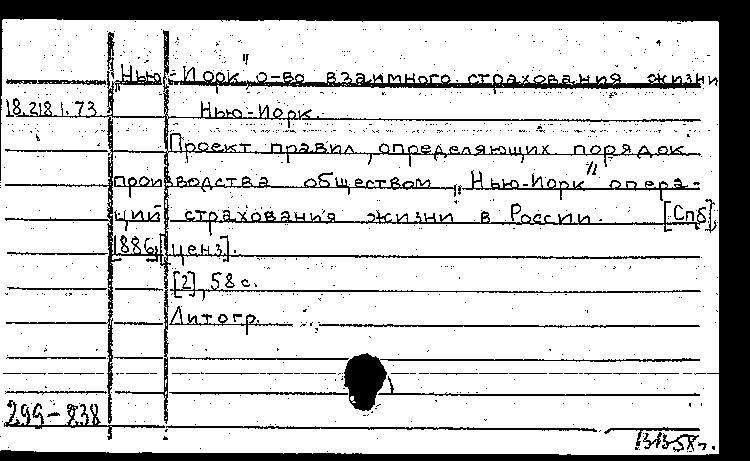 „Нью-Йорк" о-во взаимного страхования жизни
18.218.1.73 Нью-Йорк.
Проект правил, определяющих порядок
производства обществом „Нью-Йорк" опера-
ций страхования жизни в России. [Спб],
1886 [ценз].
[2], 58 с.
Литогр.
299-838